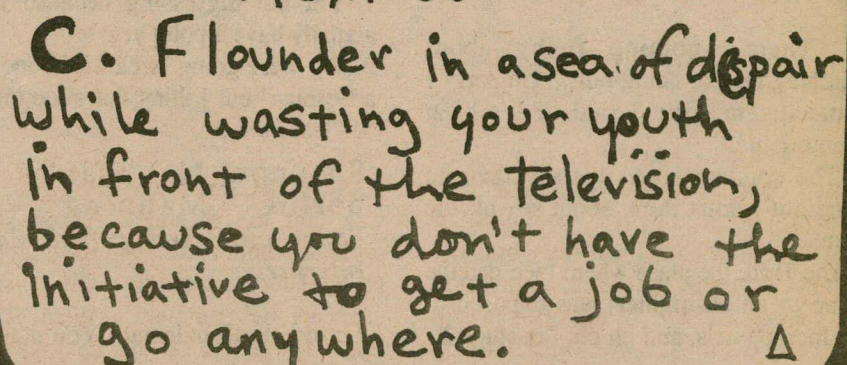 C. Flounder in a sea of despair
while wasting your youth
in front of the television,
because you don't have the
initiative to get a job or
go anywhere. Δ